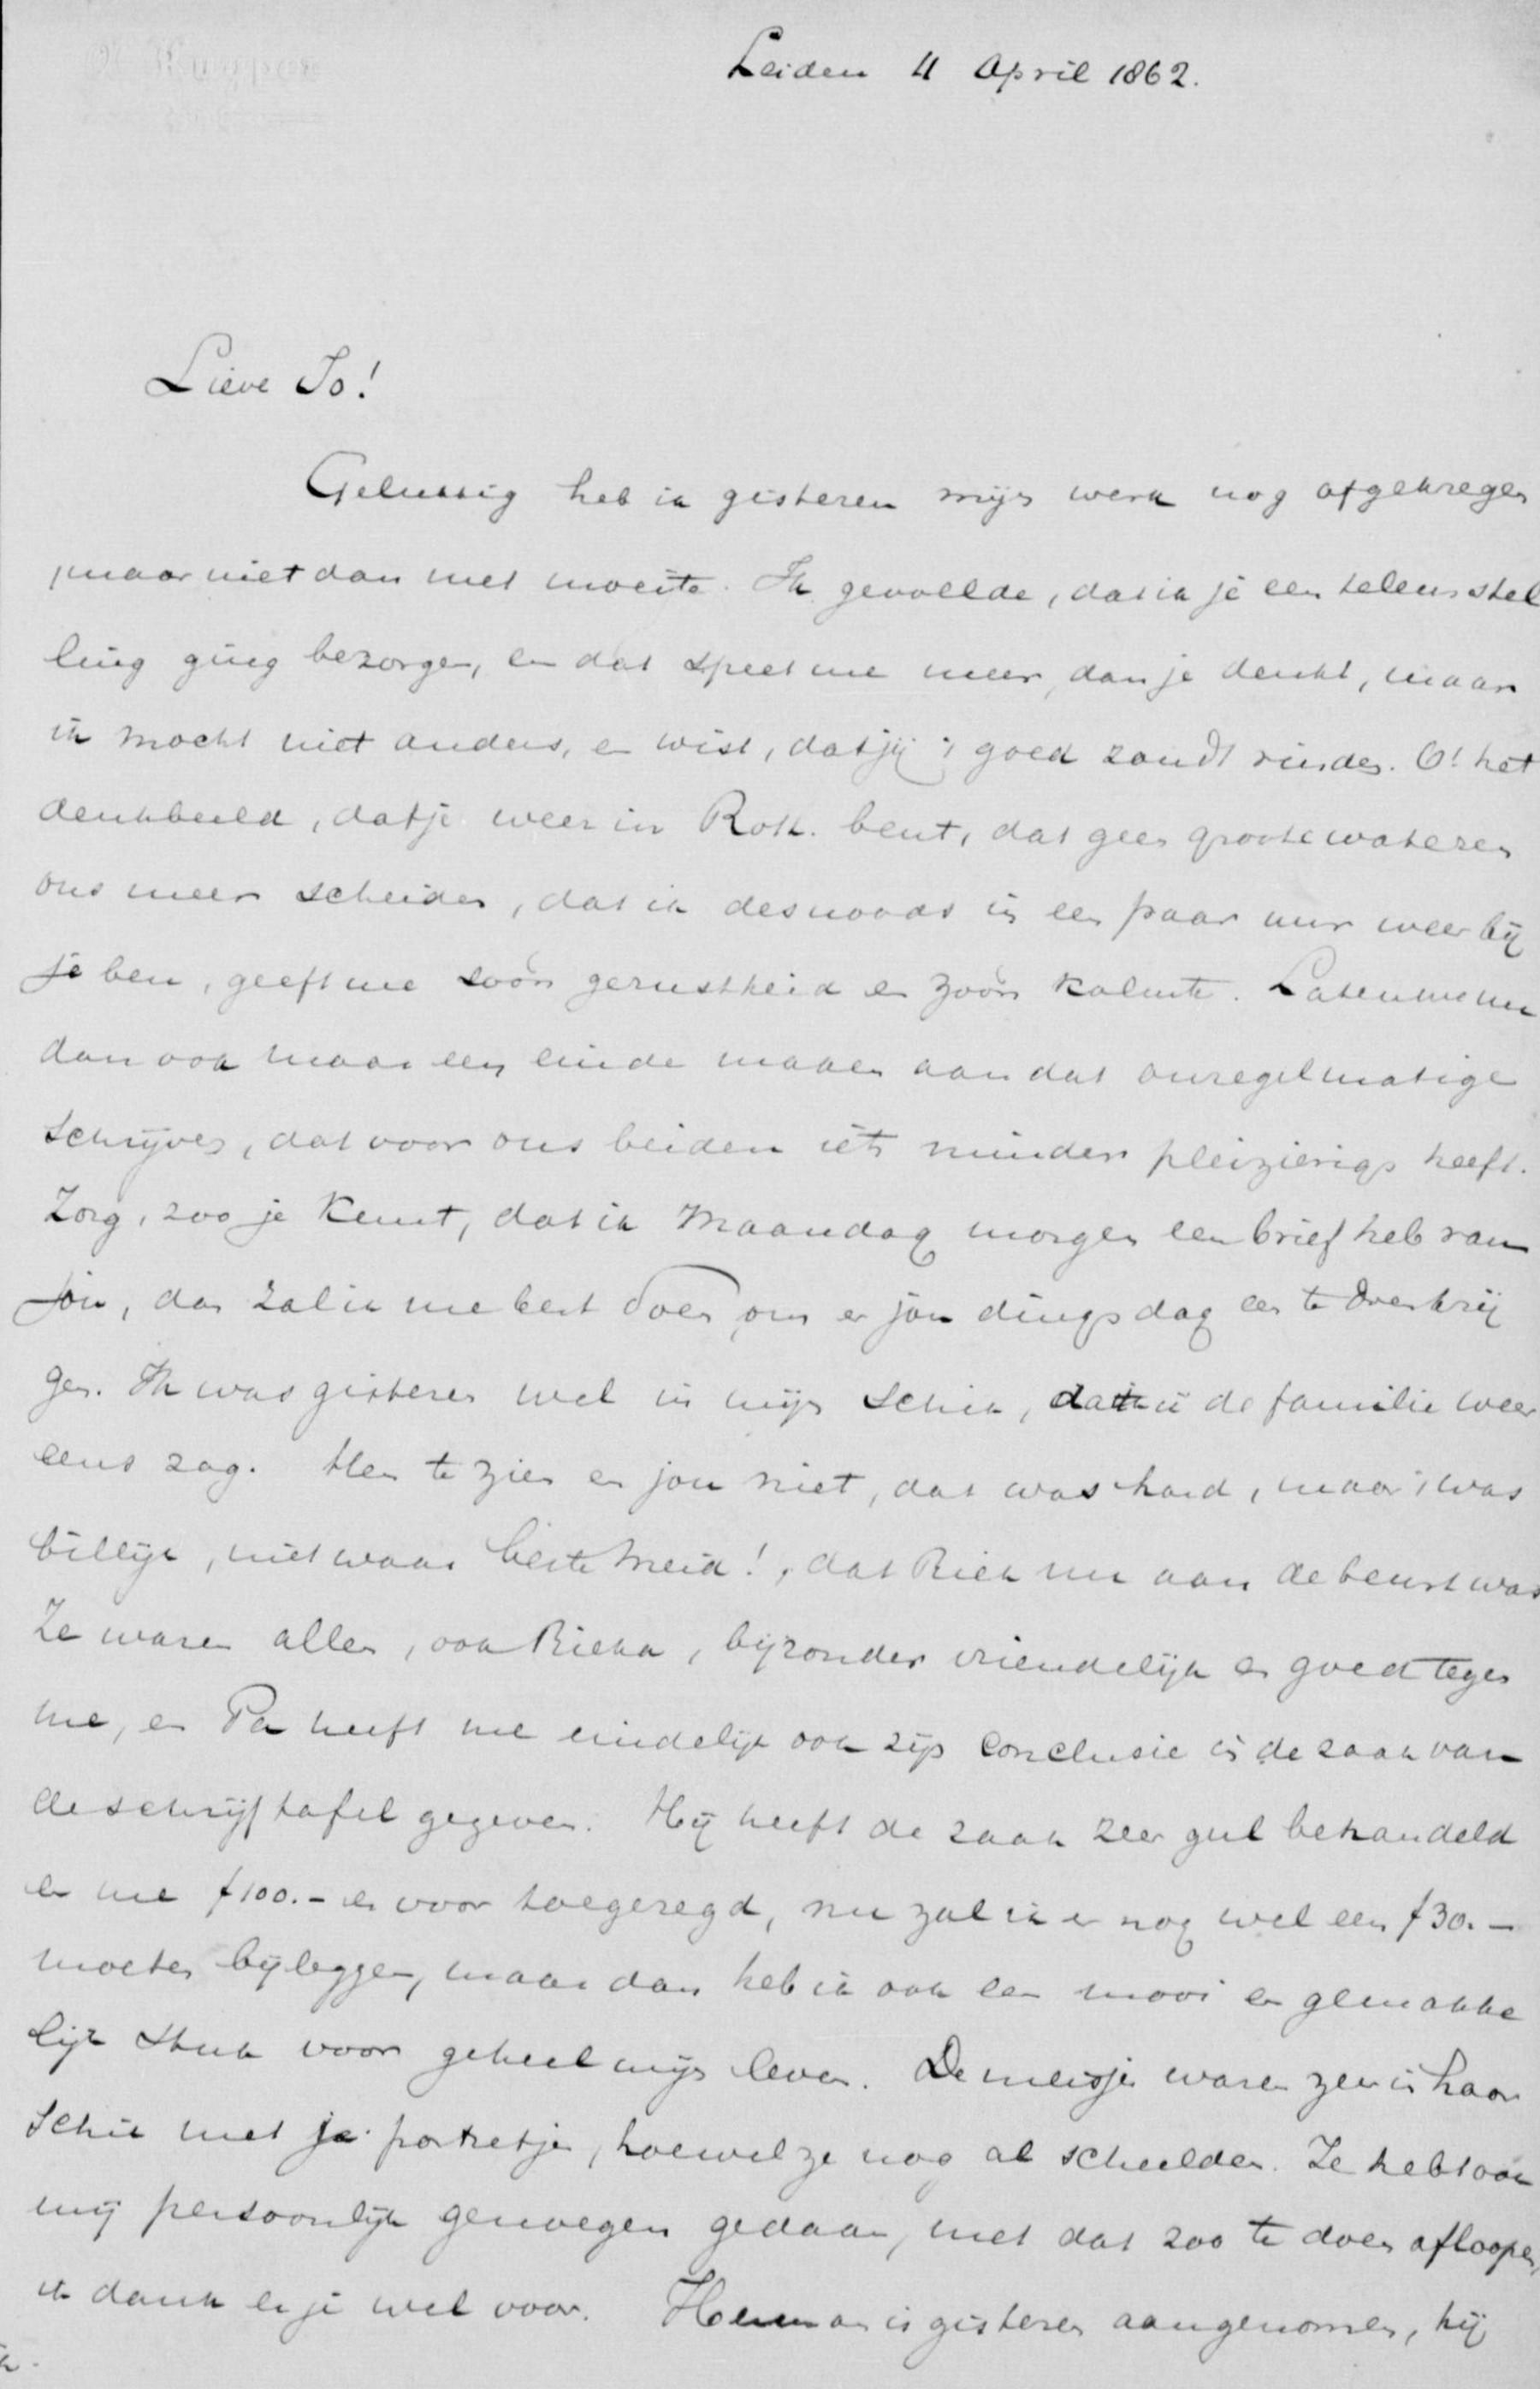 Leiden 4 April 1862.
Lieve Jo!
Gelukkig heb ik gisteren mijn werk nog afgekregen
, maar niet dan met moeite. Ik gevoelde, dat ik je een teleurstel
ling ging bezorgen, en dat speet me meer, dan je denkt, maar
ik mocht niet anders, en wist, dat jij 't goed zoudt vinden. O! het
denkbeeld, dat je weer in Rott. bent, dat geen groote wateren
ons meer scheiden, dat ik desnoods in een paar uur weer bij
je ben, geeft me zoo'n gerustheid en zoo'n kalmte. Laten we nu
dan ook maar een einde maken aan dat onregelmatige
schrijven, dat voor ons beiden iets minder pleizierigs heeft.
Zorg, zoo je kunt, dat ik Maandag morgen een brief heb van
jou, dan zal ik me best doen, om er jou dingsdag een te doen krij
gen. Ik was gisteren wel in mijn schik, dat ik de familie weer
eens zag. Hen te zien en jou niet, dat was hard, maar 't was
billijk, niet waar beste meid!, dat Riek nu aan de beurt was
Ze waren allen, ook Rieka, bijzonder vriendelijk en goed tegen
me, en Pa heeft me eindelijk ook zijn conclusie in de zaak van
de schrijftafel gegeven. Hij heeft de zaak zeer gul behandeld
en me f100.- er voor toegezegd, nu zal ik er nog wel een f30.-
moeten bijleggen, maar dan heb ik ook een mooi en gemakke
lijk stuk voor geheel mijn leven. De meisjes waren zeer in haar
schik met je portretje, hoewel ze nog al scheelden. Je hebt ook
mij persoonlijk genoegen gedaan, met dat zoo te doen afloopen,
ik dank er je wel voor. Herman is gisteren aangenomen, hij